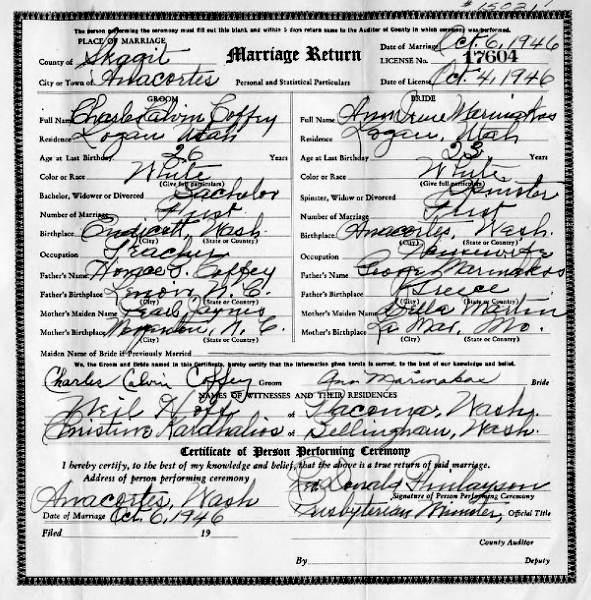 # 15021
The person performing the ceremony must fill out this blank and within 5 days return same to the Auditor of County in which ceremony was performed.
PLACE OF MARRIAGE
County of Skagit
City or Town of Anacortes
Marriage Return
Personal and Statistical Particulars
Date of Marriage Oct. 6, 1946
LICENSE NO. 17604
Date of License Oct. 4, 1946
GROOM
Full Name Charles Calvin Coffey
Residence Logan, Utah
Age at Last Birthday 26 Years
Color or Race White
(Give full particulars)
Bachelor, Widower or Divorced Bachelor
Number of Marriage First
Birthplace Endicott, Wash.
(City) (State or Country)
Occupation Teacher
Father's Name Horace S. Coffey
Father's Birthplace Lenoir N.C.
(City) (State or Country)
Mother's Maiden Name Pearl
Mother's Birthplace N.C.
(City) (State or Country)
BRIDE
Full Name Ann Irene Marinakos
Residence Logan, Utah
Age at Last Birthday 23 Years
Color or Race White
(Give full particulars)
Spinster, Widow or Divorced Spinster
Number of Marriage First
Birthplace Anacortes, Wash.
(City) (State or Country)
Occupation Housewife
Father's Name George Marinakos
Father's Birthplace Greece
(City) (State or Country)
Mother's Maiden Name Della Martin
Mother's Birthplace La Mar, Mo.
(City) (State or Country)
Maiden Name of Bride if Previously Married
We, the Groom and Bride named in this Certificate, hereby certify that the information given herein is correct, to the best of our knowledge and belief.
Charles Calvin Coffey Groom Ann Marinakos Bride
NAMES OF WITNESSES AND THEIR RESIDENCES
Neil Hoff of Tacoma, Wash.
Christine Karathalios of Bellingham, Wash.
Certificate of Person Performing Ceremony
I hereby certify, to the best of my knowledge and belief, that the above is a true return of said marriage.
Address of person performing ceremony
Donald Finlayson
Signature of Person Performing Ceremony
Anacortes, Wash
Presbyterian Minister, Official Title
Date of Marriage Oct. 6, 1946
Filed 19
County Auditor
By Deputy